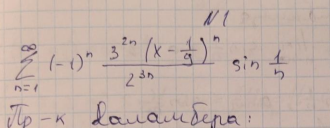 N1
∑_{n=1}^{∞} (-1)^n \frac{3^{2n} (x - \frac{1}{9})^n}{2^{3n}} sin \frac{1}{n}
Пр-к Даламбера: